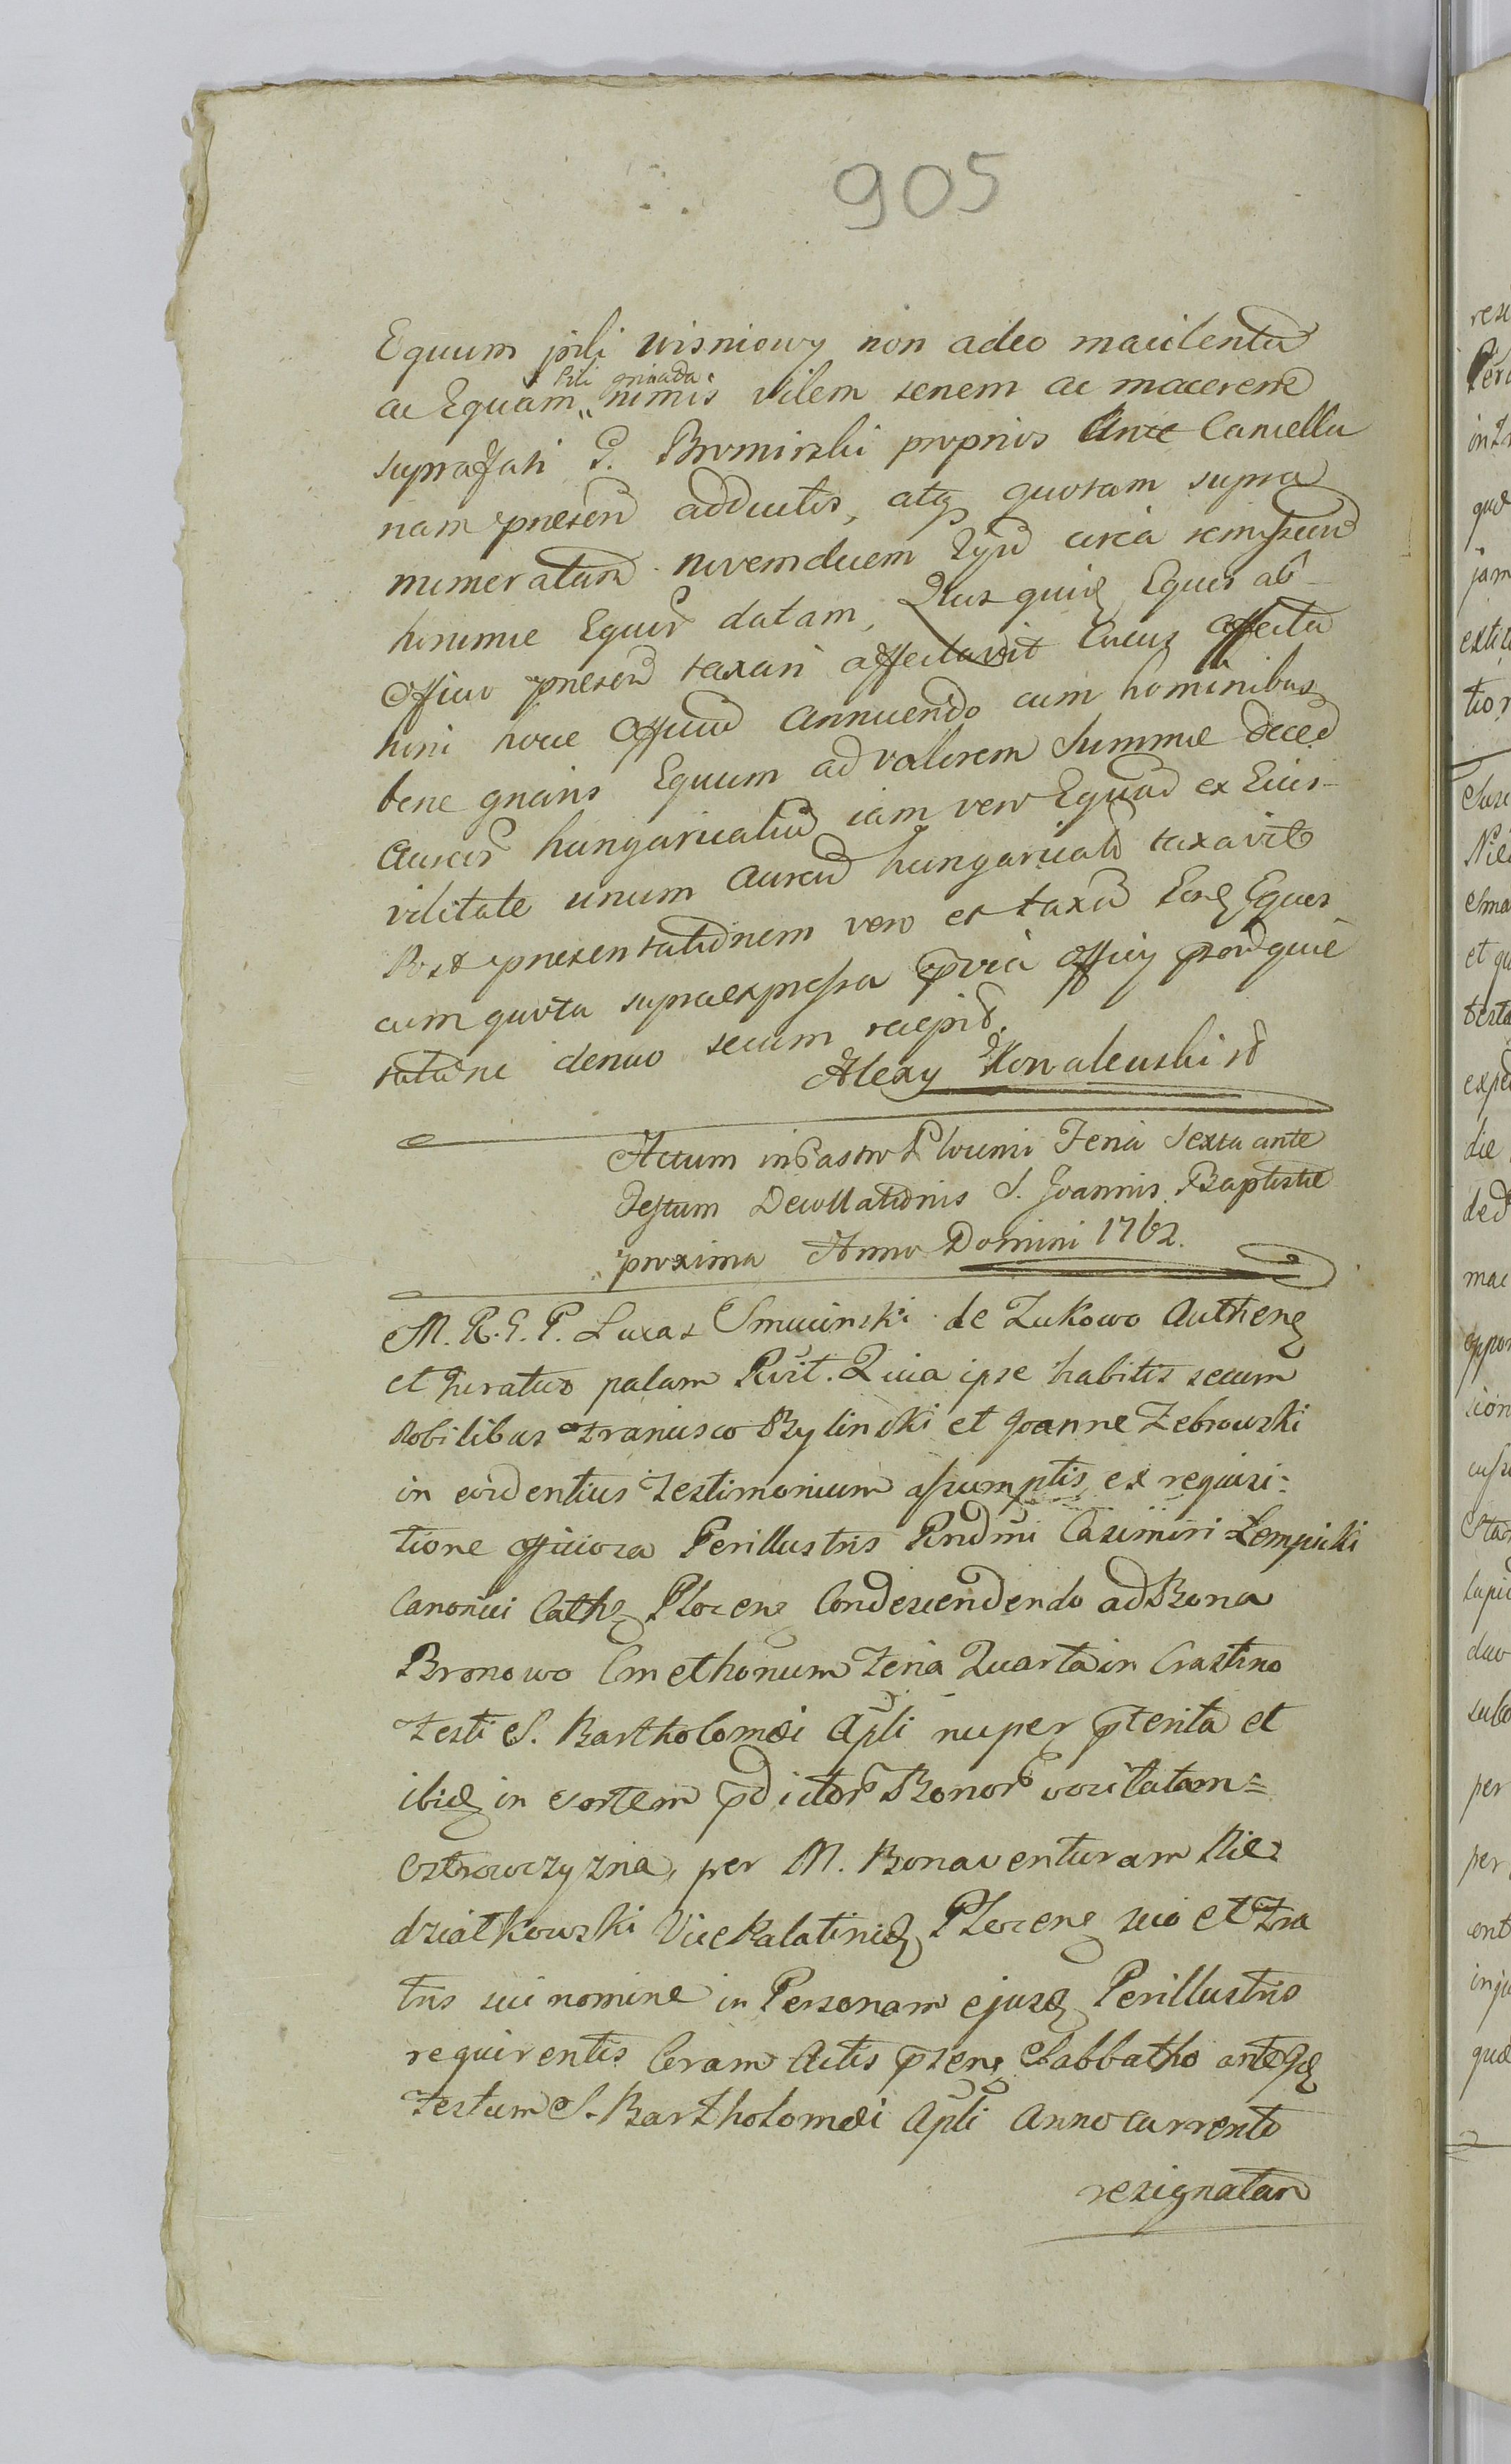 905
Equum pili wisniowy non adeo macilentũ
Pili gniada
ac Equam nimis vilem senem ac macerem
suprafati G. Bromirski proprios Ante Cancella
nam presen adductos, atq quotam supra
numeratam novemdecem circa remissam
hominie Equor datam, Quos quid Equos ab
Officio presen taxari affectavit Cuius affecta
tioni hocce Offium annuendo cum hominibus
bene gnaris Equum ad valorem Summe deced
Aureor hungaricaliu iam vero Equam ex Eius
vilitate unum Aureu hungaricale taxavit
Post presentationem vero et taxam Eord Equor
cum quota supraexpressa previa officy prord quie
tatione denuo secum recepit.
Alexy Kowalewski
Actum in Castro Plocensi Feria Sexta ante
Festum Decollationis S. Joannis Baptistæ
proxima Anno Domini 1762.
M. R. G. P. Lucas Smucinski de Zukowo Authen
et Juratus palam Rvit. Quia ipse habitis secum
Nobilibus Francisco Bylinski et Joanne Zebrowski
in evidentius Testimonium assumptis, ex requisi=
tione officiosa Perillustris Rndmi Casimiri Lempicki
Canonici Cath Plocen Condescendendo ad Bona
Bronowo Cmethonum Feria Quarta in Crastino
Festi S. Bartholomæi Apli nuper pterita et
ibid in sortem pdictor Bonor vocitatam=
Ostrowczyzna, per M. Bonaventuram Nie=
działkowski Vice Palatinid Plocen suo et Fra
tris sui nomine in Personam ejusd Perillustris
requirentis Coram Actis psen Sabbatho ante
Festum S. Bartholomæi Apli Anno currente
resignatam